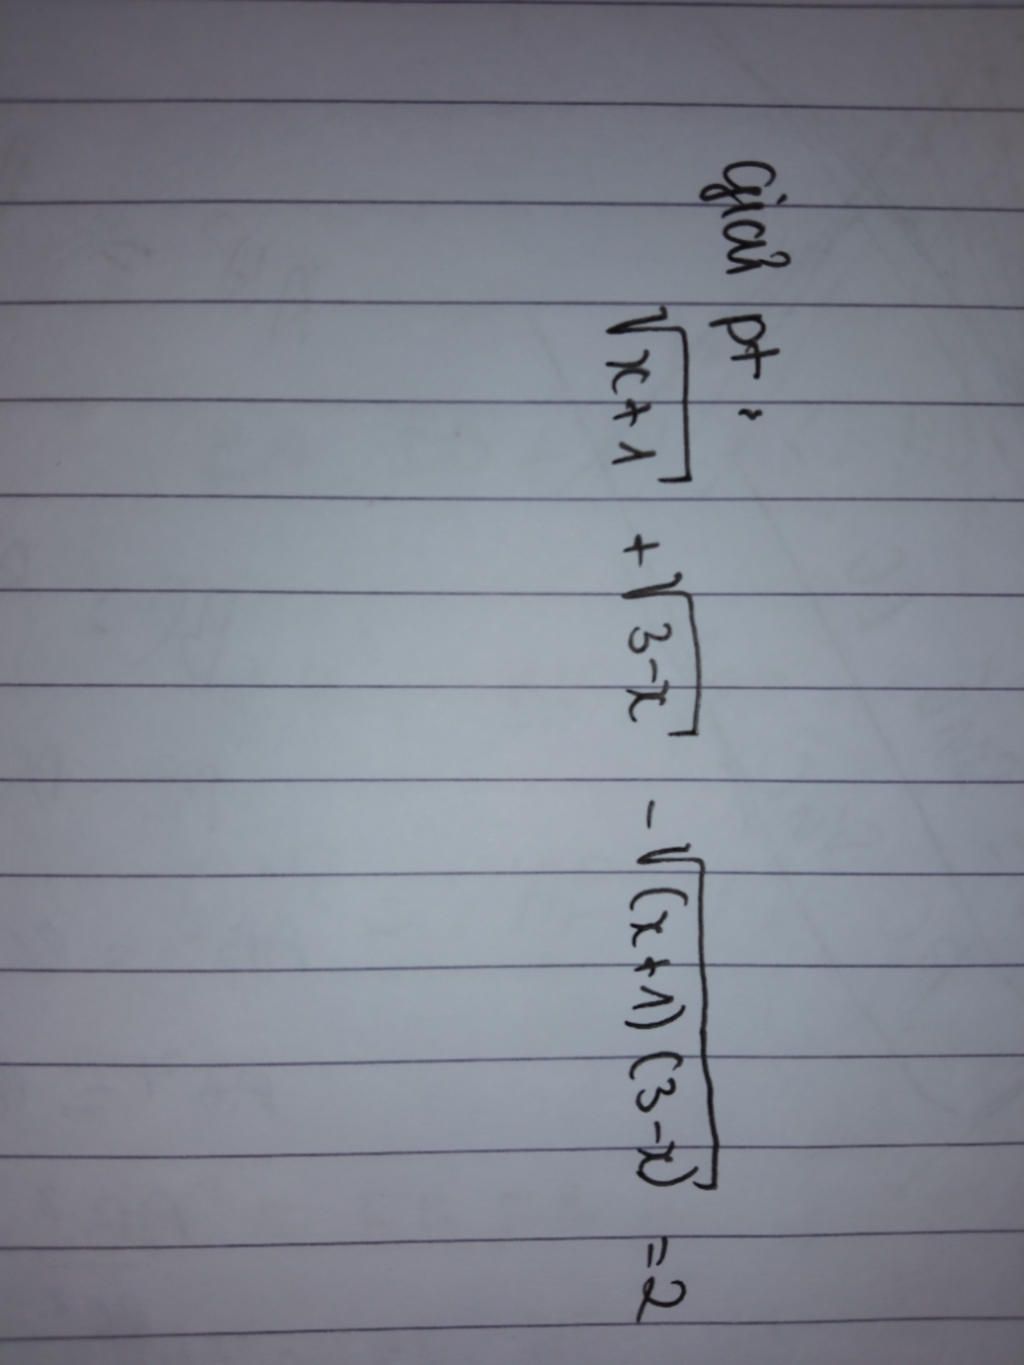 Giải pt :
√(x+1) + √(3-x) - √((x+1)(3-x)) = 2